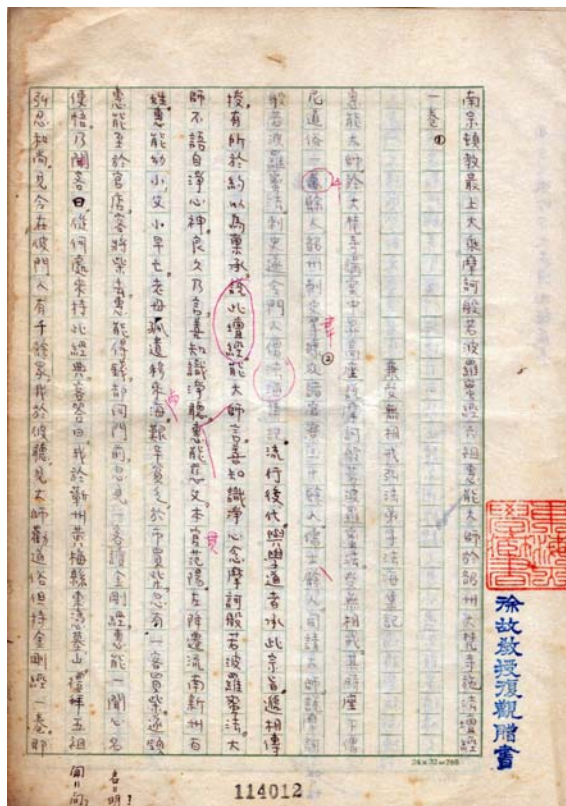 南宗頓教最上大乘摩訶般若波羅蜜經六祖惠能大師於韶州大梵寺施法壇經
一卷①
兼受無相戒弘法弟子法海集記
惠能大師於大梵寺講堂中昇高座說摩訶般若波羅蜜法受無相戒其時座下僧
尼道俗一萬餘人韶州刺史等據及諸官寮三十餘人儒士餘人同請大師說摩訶
般若波羅蜜法刺史遂令門人僧法海集記流行後代與學道者承此宗旨遞相傳
授有所於約以為稟承說此壇經能大師言善知識淨心念摩訶般若波羅蜜法。大
師不語自淨心神良久乃言善知識淨聽惠能慈父本官范陽左降遷流南新州百
姓惠能幼小父小早亡老母孤遺移來海艱辛貧乏於市買柴忽有一客買柴遂領
惠能至於官店客將柴去惠能得錢却向門前忽見一客讀金剛經惠能一聞心名
便悟乃聞客曰從何處來持此經典客答曰我於蘄州黃梅縣東憑墓山禮拜五祖
弘忍和尚見今在彼門人有千餘眾我於彼聽見大師勸道俗但持金剛經一卷即
名=明?
聞=問?
徐故教授復觀贈書
24×32=768
114012